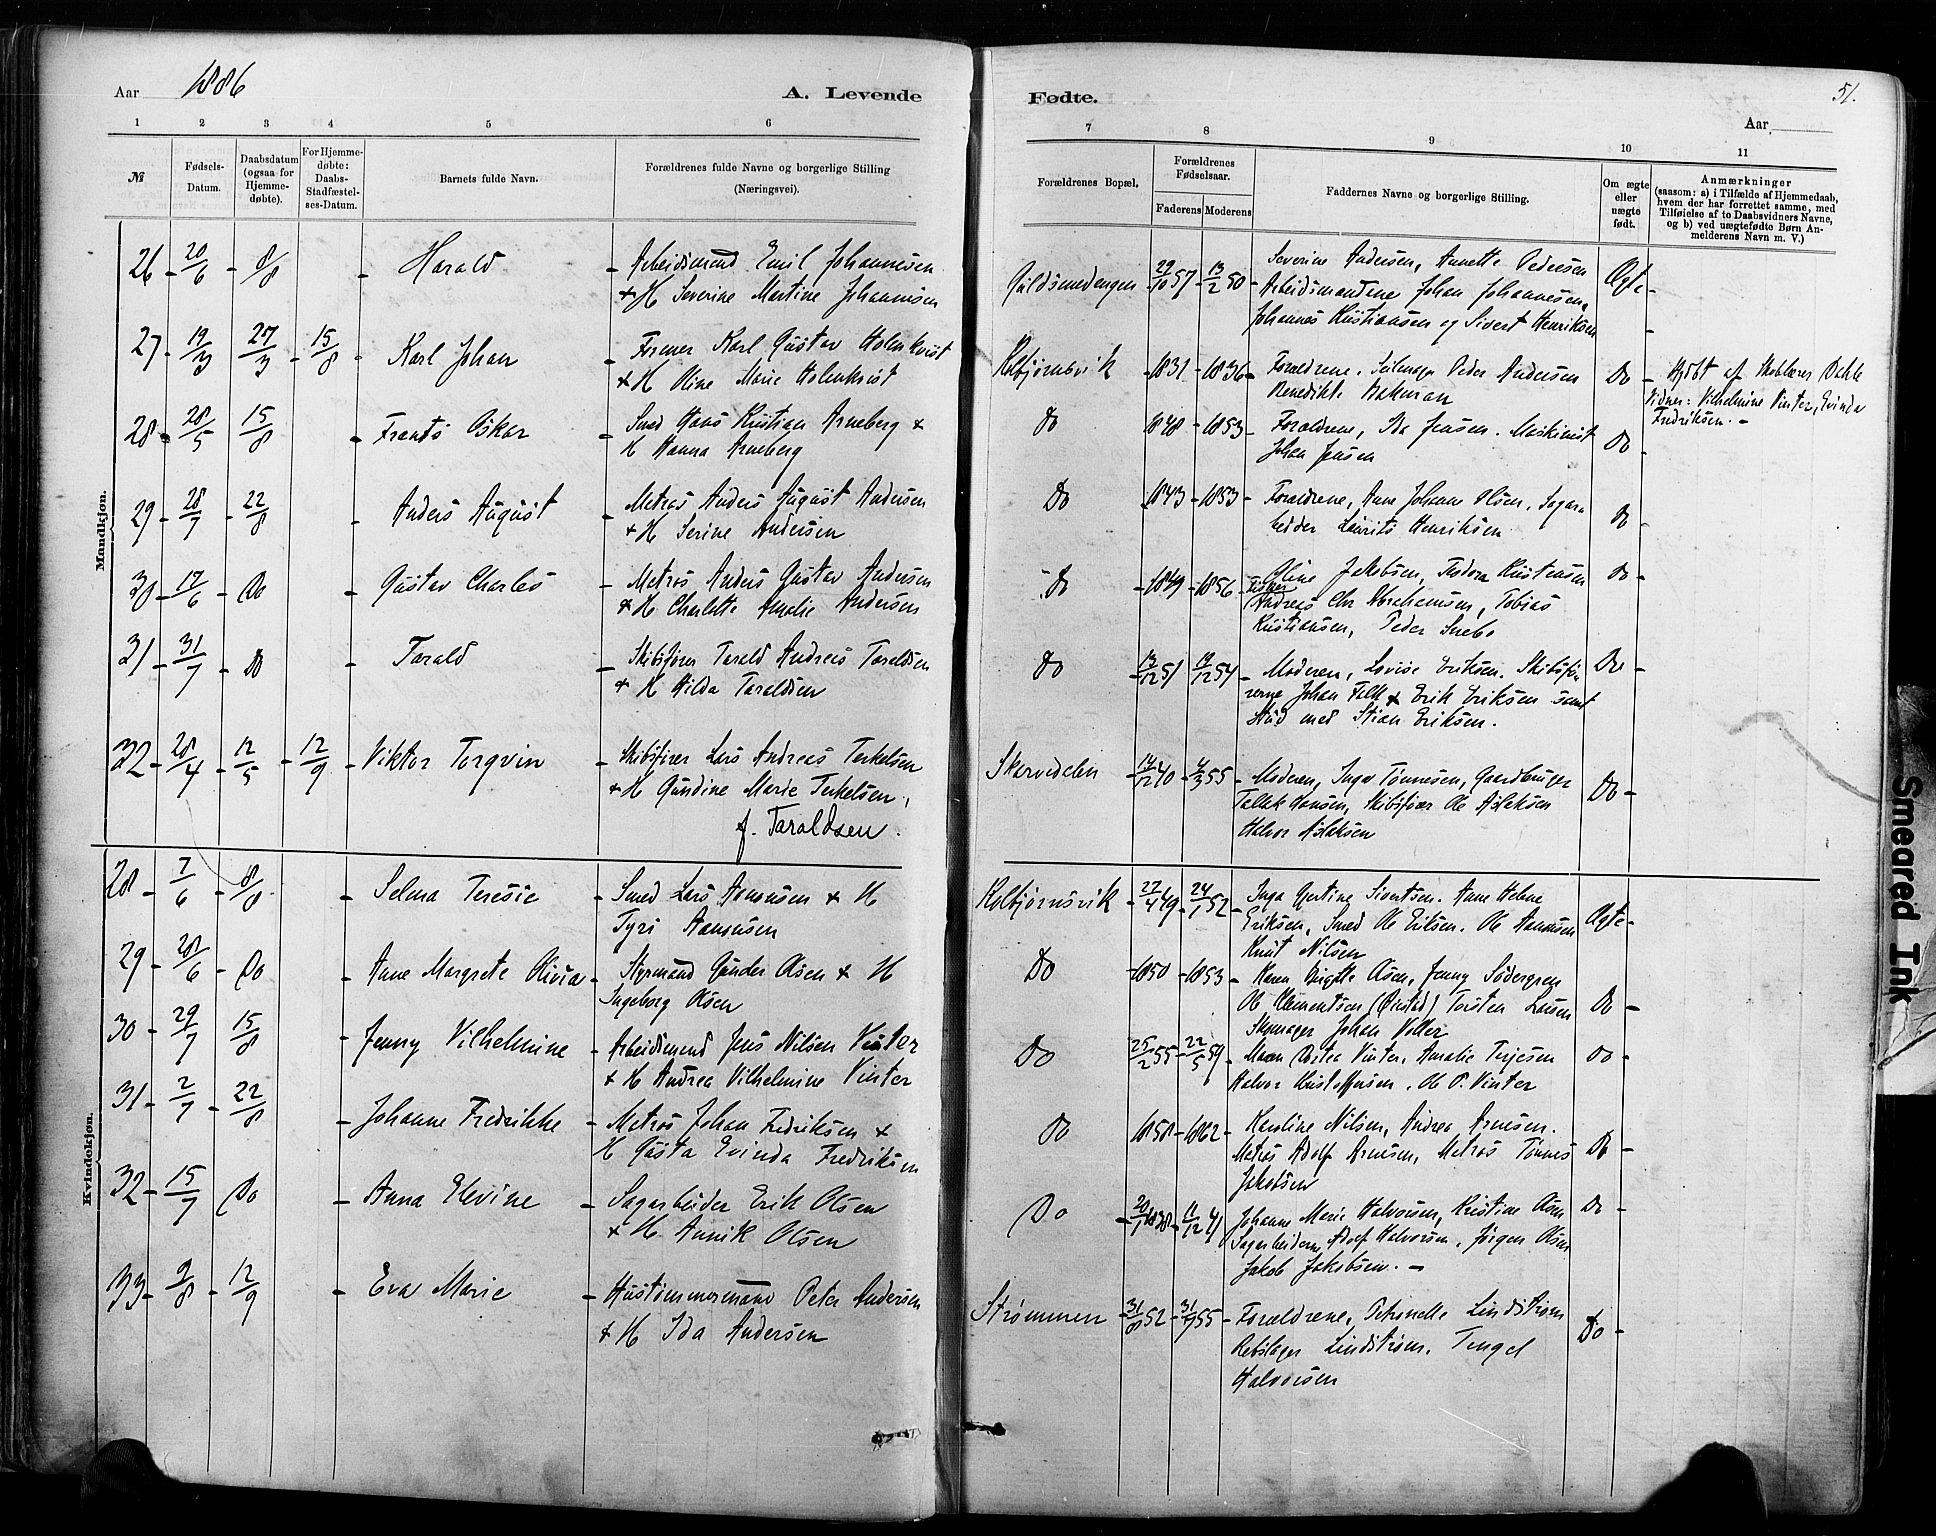 Aar 1886
A. Levende
1 2 3 4 5 6
№
Fødsels-
Datum.
Daabsdatum
(ogsaa for
Hjemme-
døbte).
For Hjemme-
døbte:
Daabs-
Stadfæstel-
ses-Datum.
Barnets fulde Navn.
Forældrenes fulde Navne og borgerlige Stilling
(Næringsvei).
Mandkjøn.
26 - 20/6 - 8/8 - Harald - Arbeidsmand Emil Johannesen
+ H Severine Martine Johannesen
27 - 19/3 27/3 - 15/8 - Karl Johan - Karl Gustav Holmkvist
+ H Oline Marie Holmkvist
28 - 28/5 15/8 - Frants Oskar - Smed Hans Kristian Arneberg +
H Hanna Arneberg
29 - 28/7 - 22/8 - Anders August - Matros Anders August Andersen
+ H Serine Andersen
30 - 17/6 - Do - Gustav Charles - Matros Anders Gustav Andersen
+ H Charlotte Amalie Andersen
31 - 31/7 - Do - Tarald - Skibsfører Tarald Andreas Taraldsen
+ H Hilda Taraldsen
32 - 28/4 - 12/5 - 12/9 - Viktor Torqvin - Skibsfører Lars Andreas Terkelsen
+ H Gundine Marie Terkelsen,
f. Taraldsen.
Kvindekjøn.
28 - 7/6 - 8/8 - Selma Teresie - Smed Lars Aanonsen + H
Tyri Aanonsen
29 - 28/6 - Do - Anne Margrete Olivia - Styrmand Gunder Olsen + H
Ingeborg Olsen
30 - 29/7 15/8 - Jenny Vilhelmine - Arbeidsmand Jens Nilsen Vinter
+ H Andrea Vilhelmine Vinter
31 - 2/7 - 22/8 - Johanne Fredrikke - Matros Johan Fredriksen +
H Gusta Evinda Fredriksen
32 - 15/7 Do - Anna Elevine - Sagarbeider Erik Olsen
+ H. Annik Olsen
33 - 9/8 - 12/9 - Eva Marie - Hustømmermand Peter Andersen
+ H Ida Andersen
Fødte.
51.
Aar
7 8 9 10 11
Forældrenes Bopæl.
Forældrenes
Fødselsaar.
Faderens Moderens
Faddernes Navne og borgerlige Stilling.
Om ægte
eller
uægte
født.
Anmærkninger
(saasom: a) i Tilfælde af Hjemmedaab,
hvem der har forrettet samme, med
Tilføielse af to Daabsvidners Navne,
og b) ved uægtefødte Børn An-
melderens Navn m. V.)
Guldsmedengen 29/10 57 - 13/2 50 - Severine Andersen, Annette Pedersen
Arbeidsmændene Johan Johannesen,
Johannes Kristiansen og Sivert Henriksen
Ægte -
Kolbjørnsvik - 1831 - 1836 - Forældrene. Seilmager Peder Andersen
Benedikte Bakman
Do - Hjdbt af Skolelærer Dahle
Vidner: Vilhelmine Vinter, Evinda
Fredriksen. -
Do 1848 - 1853 - Forældrene, Ida Jensen. Maskinist
Johan Jensen
Do -
Do - 1843 - 1853 - Forældrene, Anne Johanne Olsen, Sagar-
beider Laurits Henriksen
Do -
Do - 1849 - 1856 - Oline Jakobsen, Teodora Kristensen
Andreas Chr Abrahamsen, Tobias
Kristiansen, Peder Snebo
Do -
Do - 13/12 51 - 19/12 54 - Moderen, Lovise Eriksen. Skibsfø-
rerne Johan Falk + Erik Eriksen samt
Stud med Stian Eriksen.
Do -
Skarvedalen - 14/12 40 - 4/3 55 - Moderen, Inger Tønnesen, Gaardbruger
Tallak Hansen, Skibsfører Ole Aslaksen
Halvor Aslaksen
Do -
Kolbjørnsvik - 27/4 49 - 24/1 52 - Inga Gjertine Sivertsen. Anne Helene
Eriksen, Smed Ole Eriksen. Ole Aanonsen
Knut Nilsen
Ægte -
Do - 1850 - 1853 - Karen Birgitte Olsen, Jenny Södergren
Ole Clementsen (Ørestad) Torsten Larsen
Skomager Johan Voller
Do -
Do 25/2 55 - 22/5 59 - Maren Dortea Vinter, Amalie Terjesen
Halvor Kristoffersen. Ole P. Vinter
Do -
Do 1858 - 1862 - Karoline Nilsen, Andrea Arnesen.
Matros Adolf Arnesen, Matros Tønnes
Jakobsen
Do -
Do - 20/1 1838 - 11/12 41 Johanne Marie Halvorsen, Kristine Olsen
Sagarbeiderne Adolf Halvorsen, Jørgen Olsen
Jakob Jakobsen. -
Do -
Strømmen - 31/8 52 - 31/7 55 - Forældrene, Petronelle Lindstrøm
Rebslager Lindstrøm. Tengel
Halvorsen
Do -
Smeared Ink